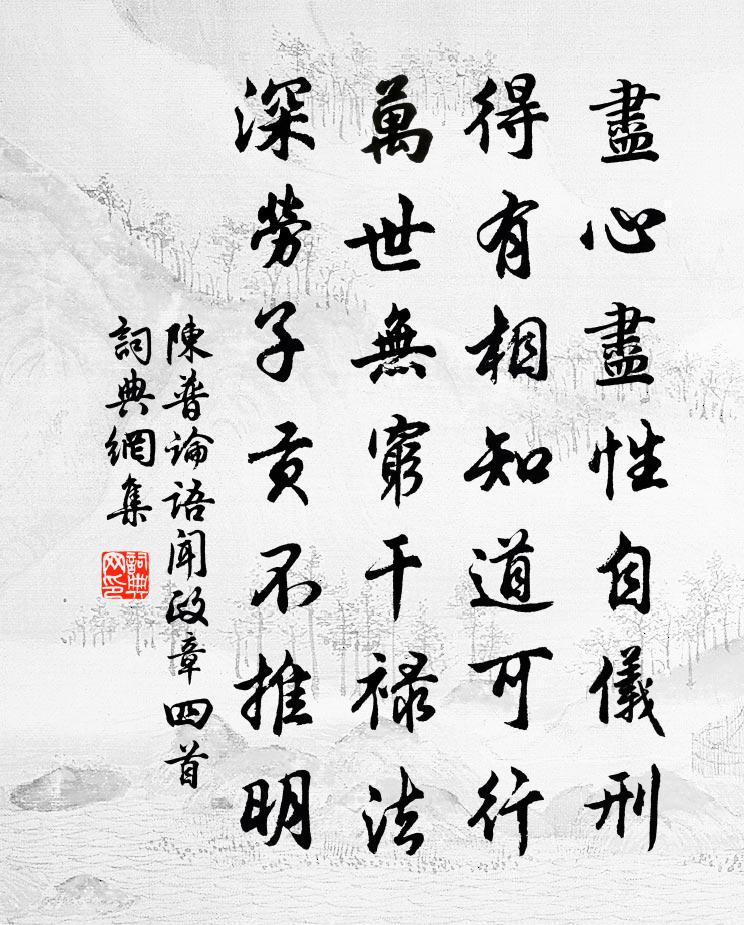 盡心盡性自儀刑
得有相知道可行
萬世無窮干祿法
深勞子貢不推明
陳普論語聞政章四首
詞典網集
詞典网印